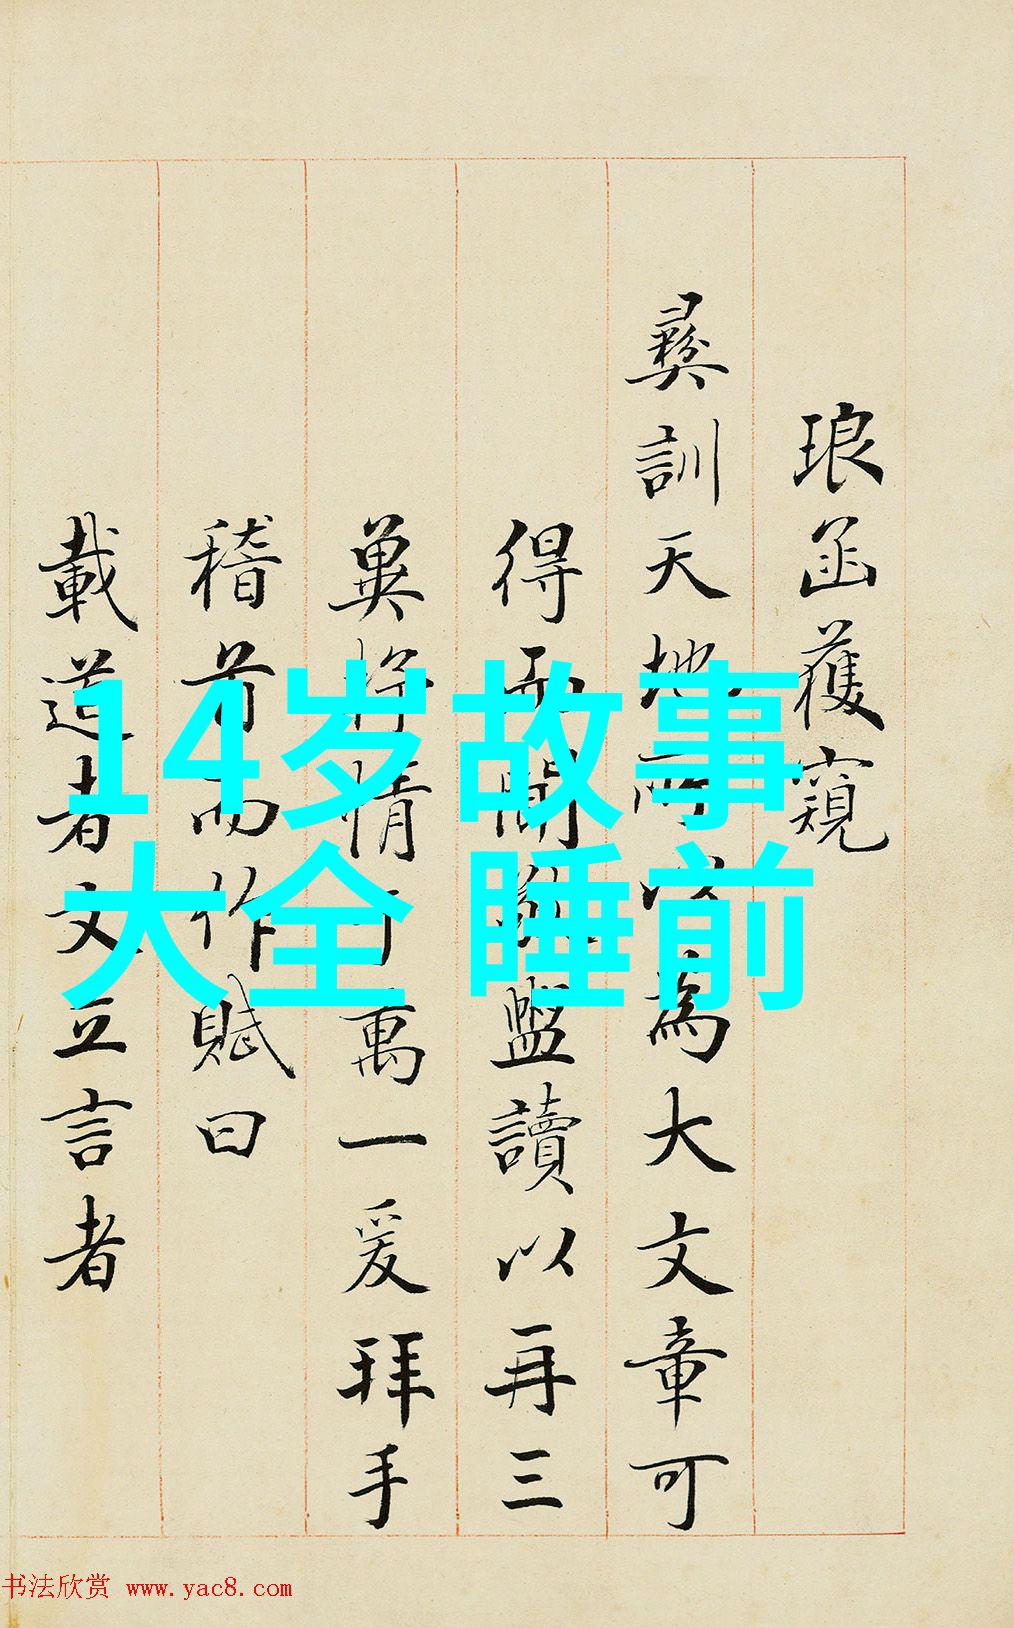 琅函獲窺
彞訓天地所以為大文章可
得而聞盥讀以再三
冀抒情于萬一爰拜手
稽首而作賦曰
載道者文立言者
14岁故事
大全 睡前
书法欣赏 www.yac8.com